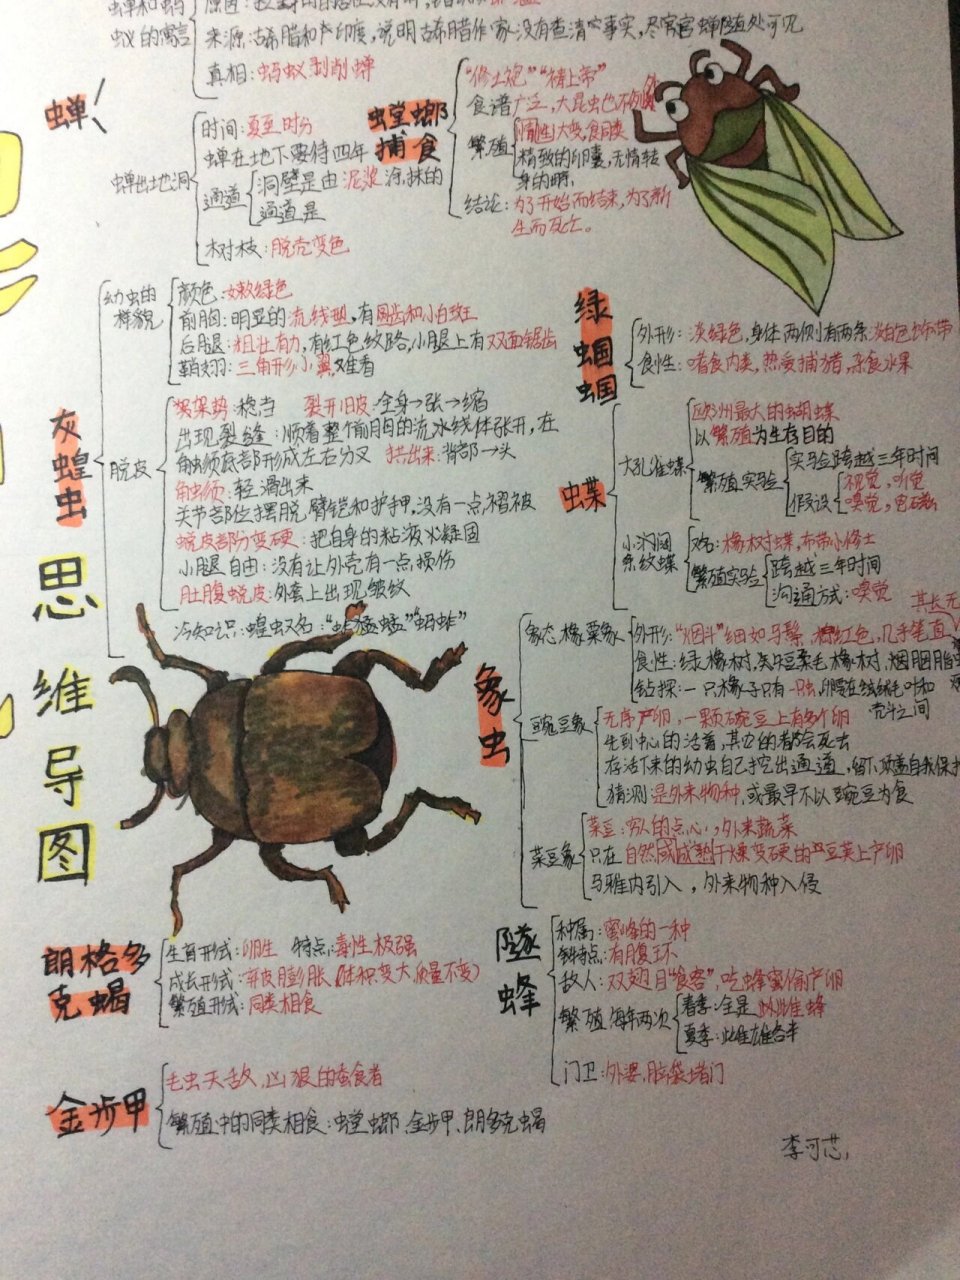 蝉和蚂
蚁的寓言
来源:古希腊和产印度,说明古希腊作家没有查清它事实,尽管蝉随处可见
真相:蚂蚁剥削蝉
蝉
蝉出地洞
时间:夏至时分
蝉在地下要待四年
通道
洞壁是由泥浆涂抹的
通道是
树枝:脱壳变色
螳螂
捕食
“修士袍”“祷上帝”
食谱广泛,大昆虫也不例外
繁殖
大变,食同类
精致的卵囊,无情转
身的
结论:为了开始而结束,为了新
生而死亡。
灰
蝗
虫
幼虫的
样貌
颜色:嫩绿色
前胸:明显的流线型,有圆齿和小白斑
后腿:粗壮有力,有红色纹路,小腿上有双面锯齿
鞘翅:三角形小翼,难看
脱皮
架势:稳当 裂开旧皮:全身→张→缩
出现裂缝:顺着整个前胸的流水线体张开,在
触须底部形成左右分叉 拱出来:背部→头
触须:轻滑出来
关节部位:摆脱臂铠和护甲,没有一点褶被
蜕皮部分变硬:把自身的粘液火凝固
小腿自由:没有让外壳有一点损伤
肚腹蜕皮:外套上出现皱纹
冷知识:蝗虫又名:“蚱蜢”“蚂蚱”
思
维
导
图
绿
蝈
蝈
外形:淡绿色,身体两侧有两条淡白色饰带
食性:喜食肉类,热爱捕猎,杂食水果
蝶
大孔雀蝶
欧洲最大的蝴蝶
以繁殖为生存目的
繁殖实验
实验跨越三年时间
假设
视觉,听觉
嗅觉,电磁
小阔
条纹蝶
又名:橡树蝶,布带小修士
繁殖实验
跨越三年时间
沟通方式:嗅觉
象
虫
象态橡栗象
外形:“烟斗”细如马鬃,红色,几乎笔直
其长无
食性:绿橡树,短柔毛橡树,烟胭脂
钻探:一只橡子只有一只虫,卵在绒毛叶和
壳斗之间
豌豆象
无序产卵,一颗豌豆上有多个卵
先到中心的活着,其它的都会死去
存活下来的幼虫自己挖出通道,留下顶盖自我保护
猜测:是外来物种,或最早不以豌豆为食
菜豆象
菜豆:穷人的点心,外来蔬菜
只在自然成熟干燥变硬的豆荚上产卵
马雅内引入,外来物种入侵
朗格多
克蝎
生育形式:卵生 特点:毒性极强
成长形式:弃皮膨胀(体积变大,质量不变)
繁殖形式:同类相食
隧
蜂
种属:蜜蜂的一种
特点:有腹环
敌人:双翅目“食客”,吃蜂蜜偷产卵
繁殖每年两次
春季:全是雌蜂
夏季:雌雄各半
门卫:外婆,脑袋堵门
金步甲
毛虫天敌,凶狠的蚕食者
繁殖中的同类相食:螳螂 金步甲、朗多克蝎
李可芯